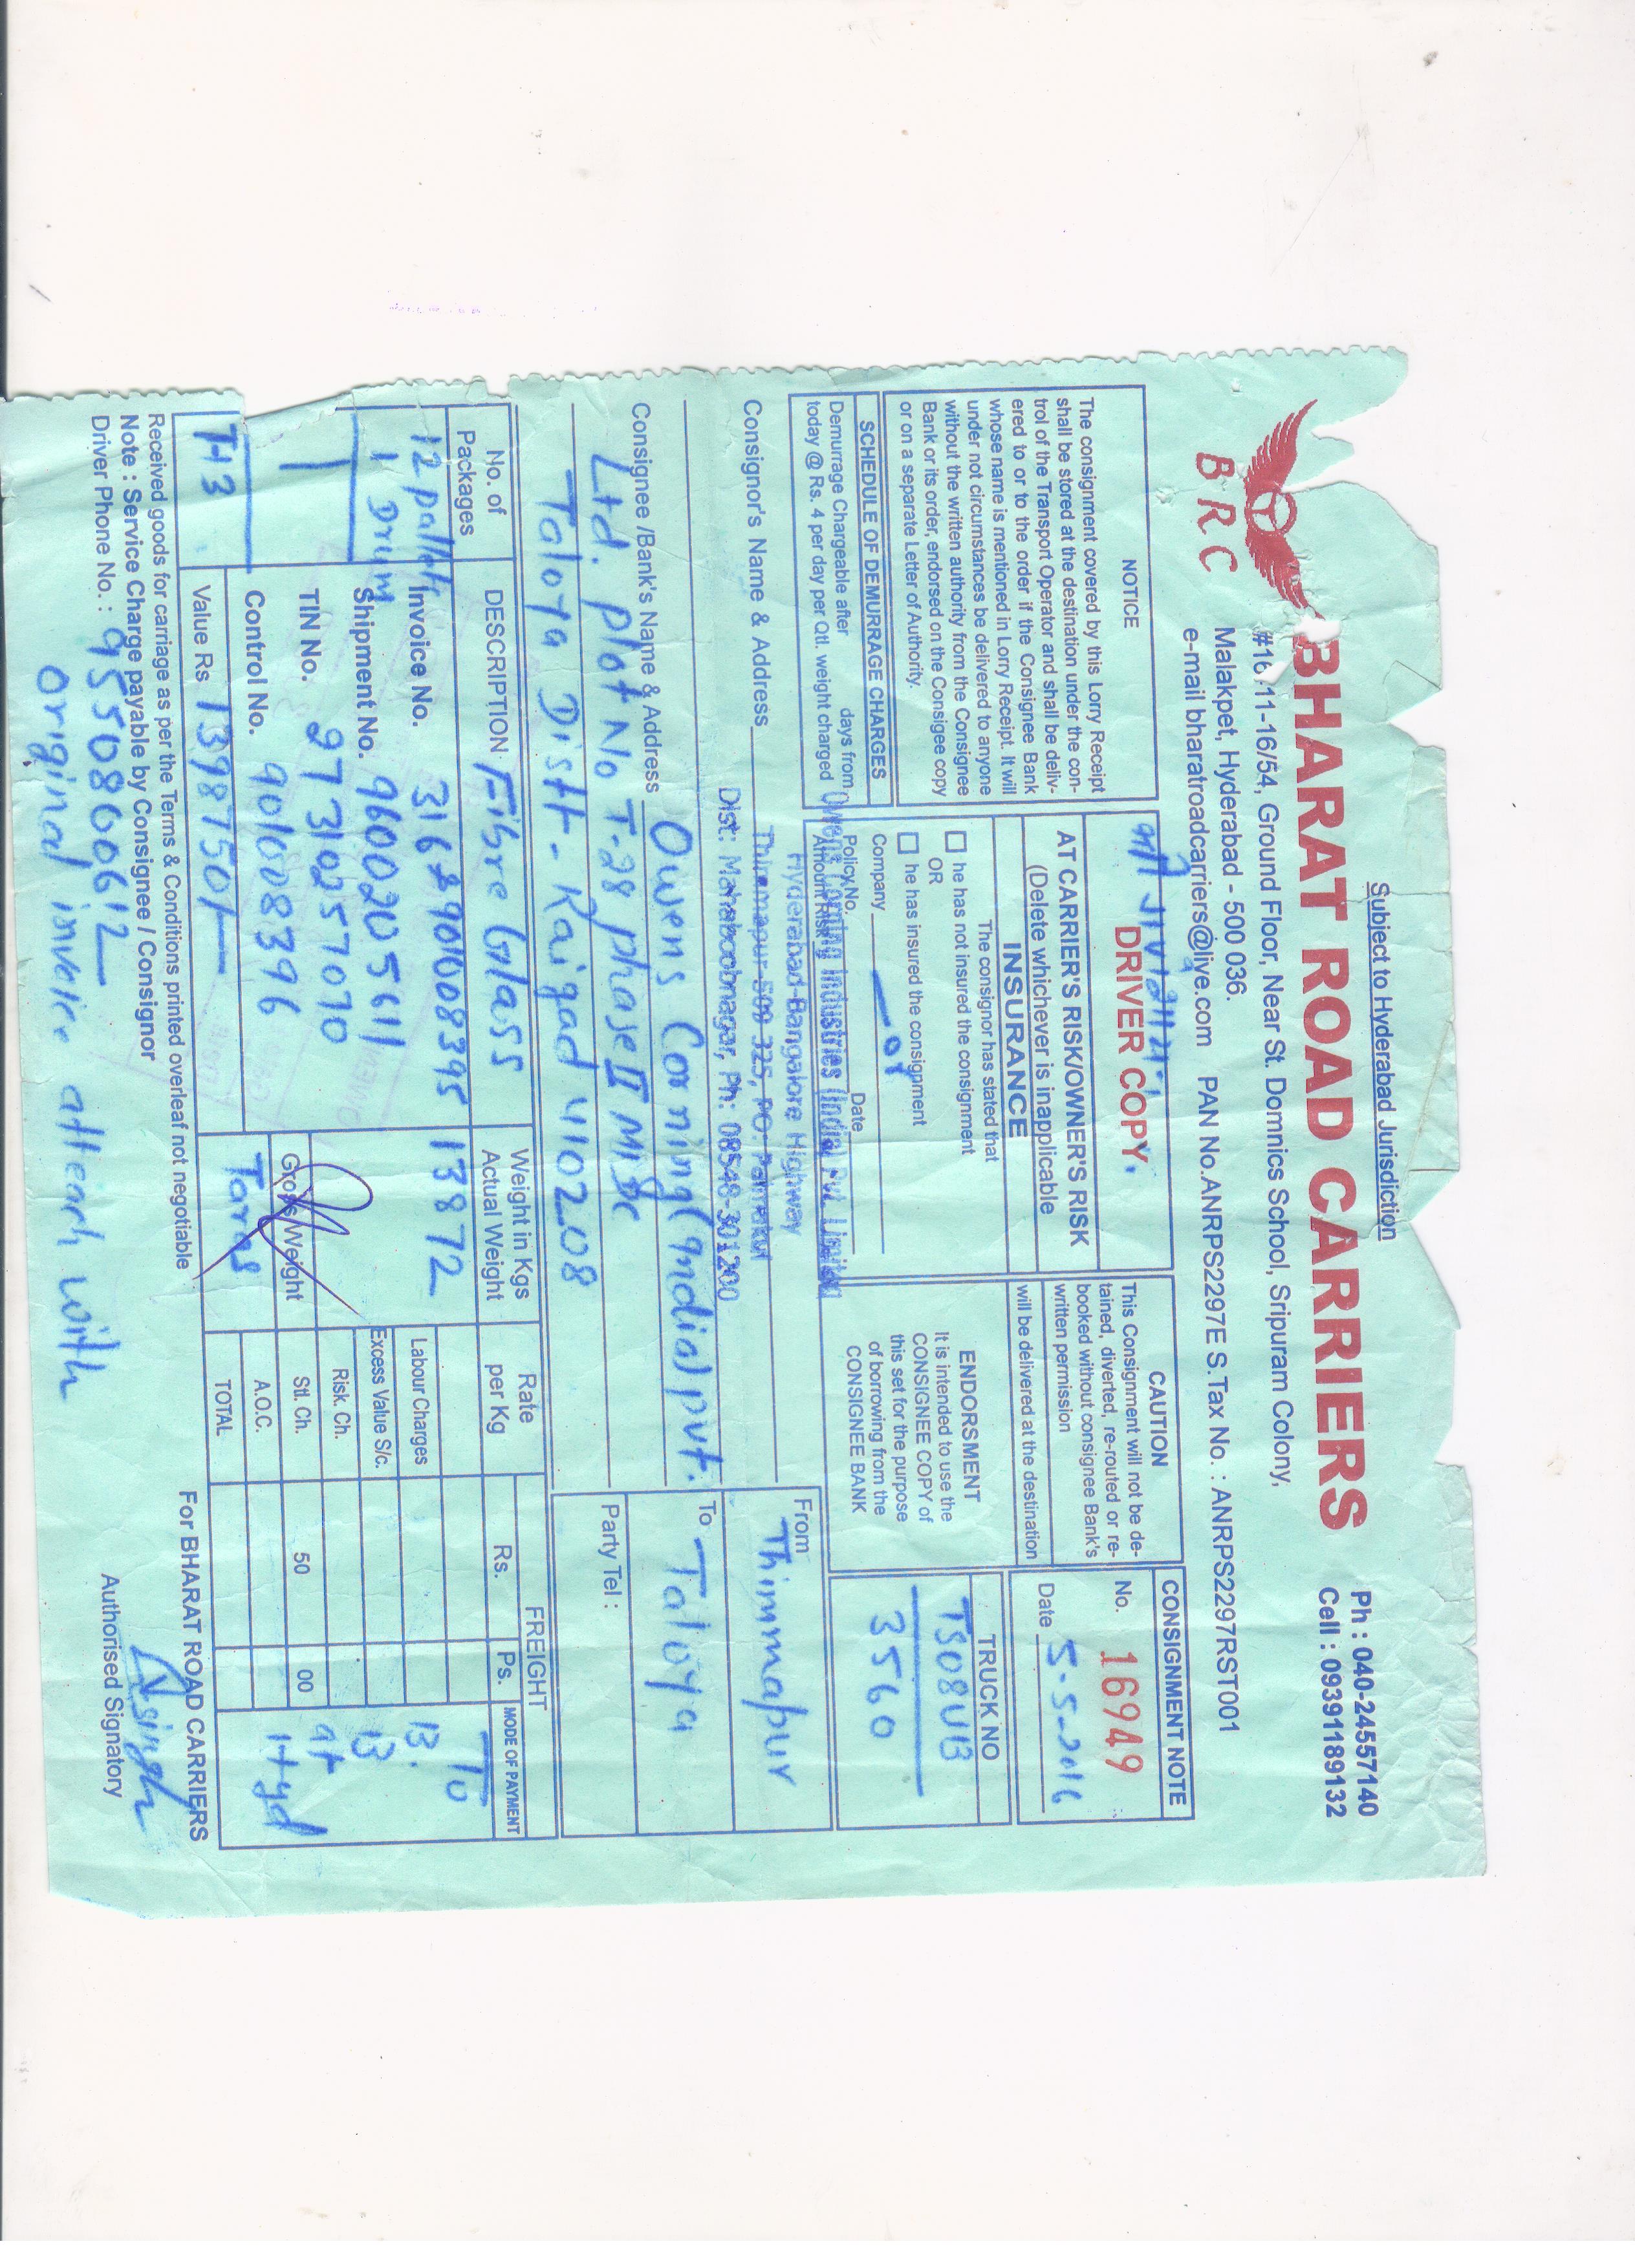 Subject to Hyderabad Jurisdiction
Ph : 040-24557140
Cell : 09391189132
BHARAT ROAD CARRIERS
BRC
#16.11-16/54, Ground Floor, Near St. Domnics School, Sripuram Colony,
Malakpet, Hyderabad - 500 036.
e-mail bharatroadcarriers@live.com PAN No.ANRPS2297E S.Tax No. : ANRPS2297RST001
NOTICE
The consignment covered by this Lorry Receipt
shall be stored at the destination under the con-
trol of the Transport Operator and shall be deliv-
ered to or to the order if the Consignee Bank
whose name is mentioned in Lorry Receipt. It will
under not circumstances be delivered to anyone
without the written authority from the Consignee
Bank or its order, endorsed on the Consigee copy
or on a separate Letter of Authority.
SCHEDULE OF DEMURRAGE CHARGES
Demurrage Chargeable after days from
today @ Rs. 4 per day per Qtl. weight charged
DRIVER COPY.
AT CARRIER'S RISK/OWNER'S RISK
(Delete whichever is inapplicable
INSURANCE
The consignor has stated that
he has not insured the consignment
OR
he has insured the consignment
Company
Policy No. Date
Amount Risk
CAUTION
This Consignment will not be de-
tained, diverted, re-routed or re-
booked without consignee Bank's
written permission
will be delivered at the destination
ENDORSMENT
It is intended to use the
CONSIGNEE COPY of
this set for the purpose
of borrowing from the
CONSIGNEE BANK
CONSIGNMENT NOTE
No. 16949
Date 5-5-2016
TRUCK NO
TS08UB
3560
Consignor's Name & Address
Owens Corning Industries (India) Pvt. Limited
Hyderabad-Bangalore Highway
Thimmapur-509 325, PO:
Dist: Mahaboobnagar, Ph: 08548-301200
From Thimmapur
To Taloya
Party Tel :
Consignee /Bank's Name & Address Owens Corning (India) pvt.
Ltd. plot No T-28 phase II MIDC
Taloya Distt - Raigad 410208
No. of Packages
DESCRIPTION Fibre Glass
Weight in Kgs
Actual Weight
Rate per Kg
FREIGHT
Rs. Ps.
MODE OF PAYMENT
12 pallets
1 Drum
T-13
Invoice No. 9010008395
Shipment No. 9600205611
TIN No. 27310257070
Control No. 9010008396
Value Rs 1398750/-
13872
Gross Weight
Labour Charges
Excess Value S/c.
Risk. Ch.
Stl. Ch. 50 00
A.O.C.
TOTAL
To
B.
B
at
Hyd
Received goods for carriage as per the Terms & Conditions printed overleaf not negotiable
Note : Service Charge payable by Consignee / Consignor
Driver Phone No. : 9550880612
Original invoice atteach with
For BHARAT ROAD CARRIERS
Authorised Signatory